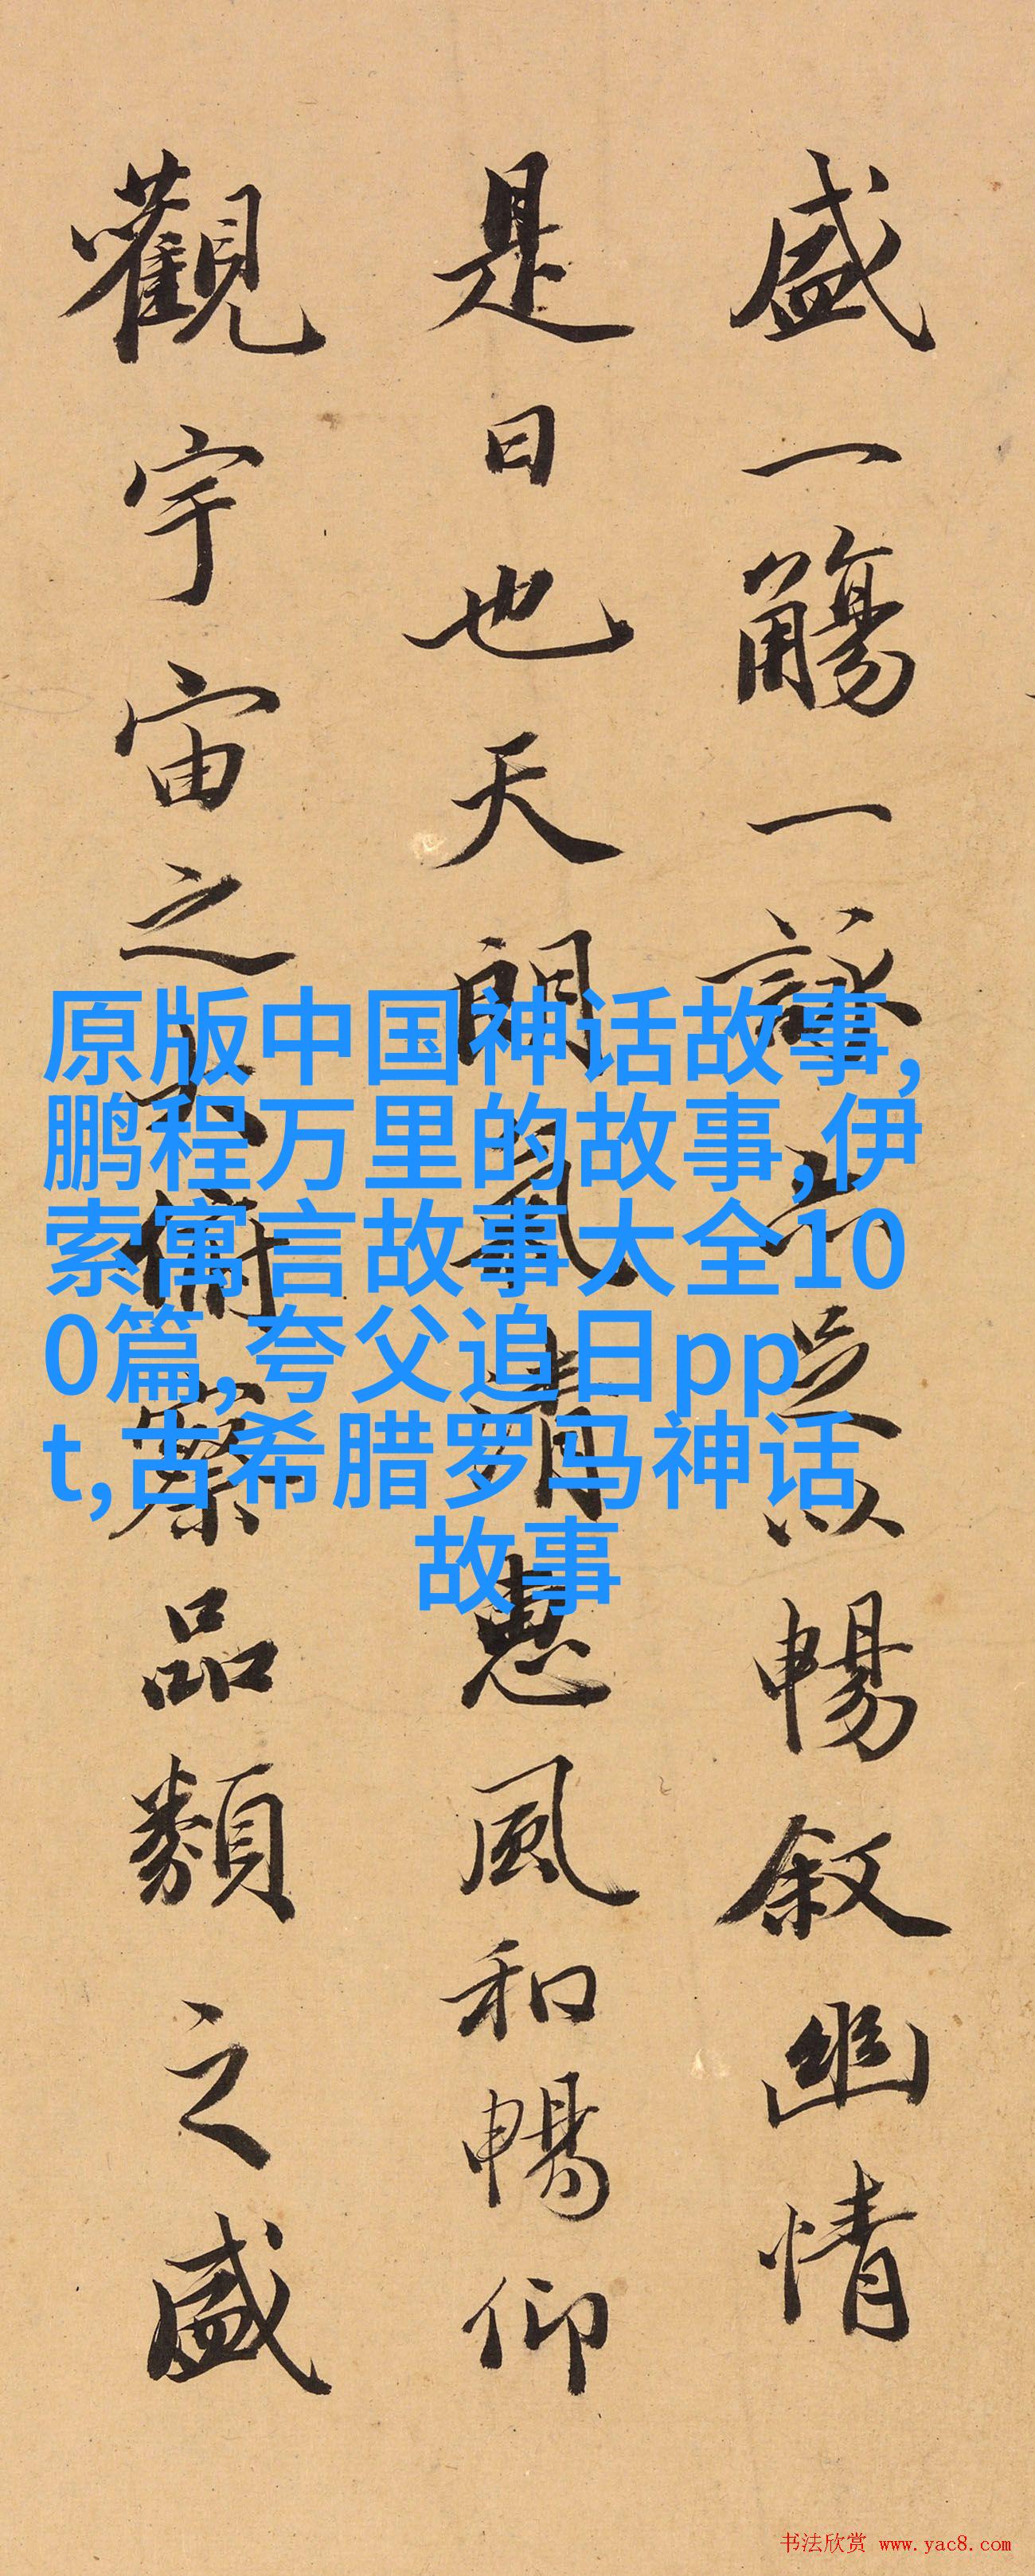 盛一觴一詠亦足以暢叙幽情
是日也天朗氣清惠風和暢仰
觀宇宙之大俯察品類之盛
原版中国神话故事,
鹏程万里的故事,伊
索寓言故事大全10
0篇,夸父追日pp
t,古希腊罗马神话
故事
书法欣赏 www.yac8.com